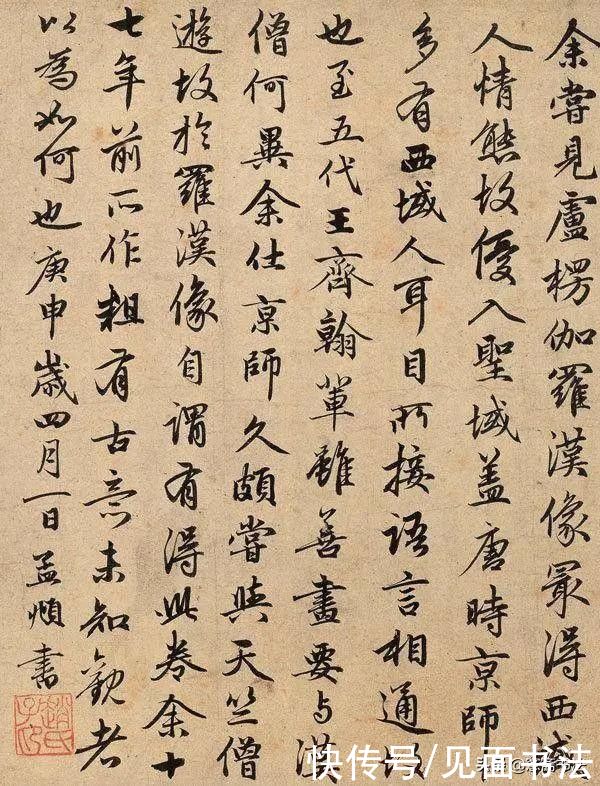 余嘗見盧楞伽羅漢像最得西域
人情態故優入聖域蓋唐時京師
多有西域人耳目所接語言相通故
也至五代王齊翰輩雖善畫要与漢
僧何異余仕京師久頗嘗與天竺僧
遊故於羅漢像自謂有得此卷余十
七年前所作粗有古意未知觀者
以為如何也庚申歲四月一日孟頫書
趙氏子昂
快传号/见面书法